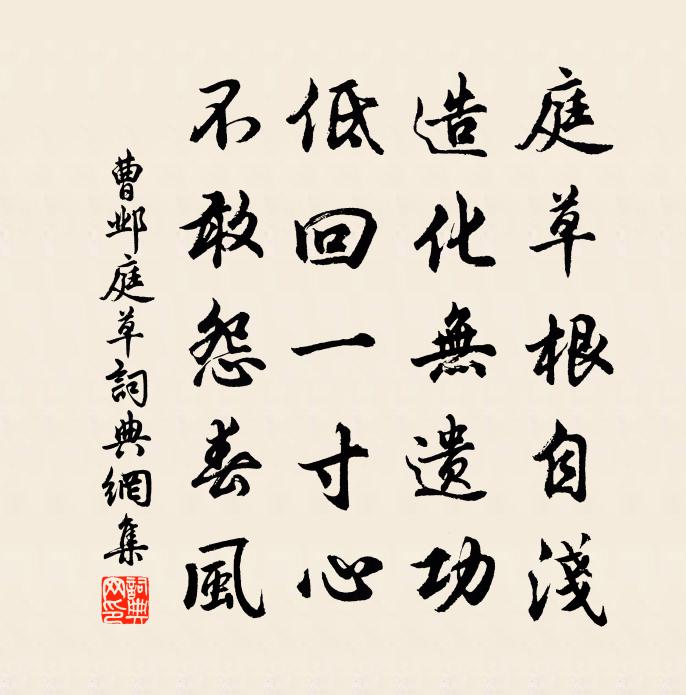 庭草根自淺
造化無遺功
低回一寸心
不敢怨春風
曹邺庭草詞典網集
詞典網印